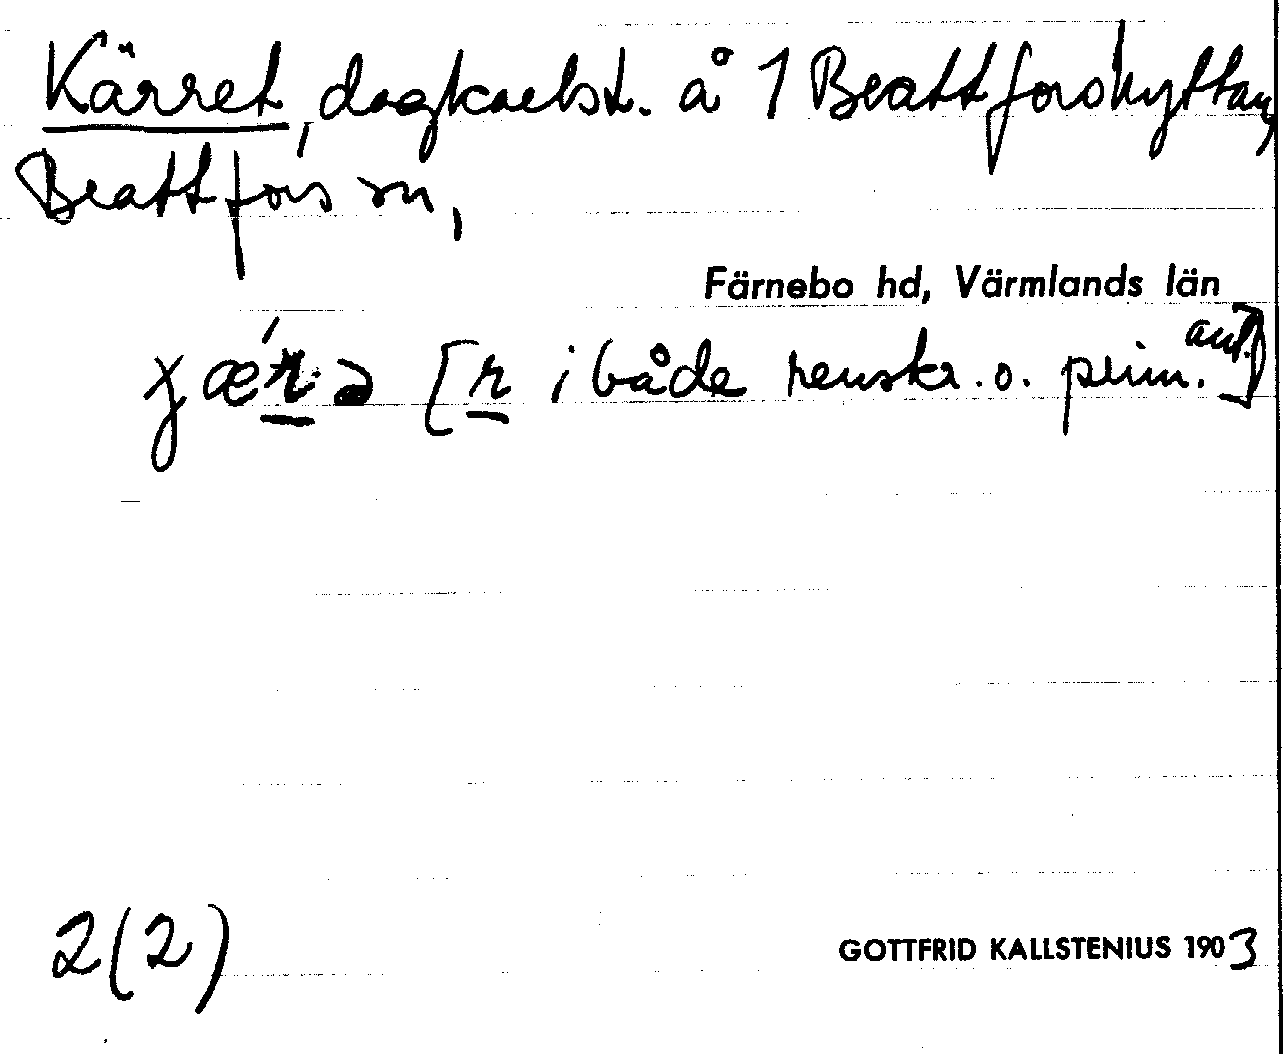 Kärret, dagkarlst. å 1 Beattforshyttan,
Beattfors sn,
Färnebo hd, Värmlands län
[r i både renskr. o. prim. ant.]
2(2)
GOTTFRID KALLSTENIUS 1903